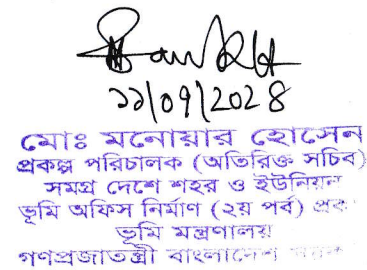 ১১/০৭/২০২৪
মোঃ মনোয়ার হোসেন
প্রকল্প পরিচালক (অতিরিক্ত সচিব)
সমগ্র দেশে শহর ও ইউনিয়ন
ভূমি অফিস নির্মাণ (২য় পর্ব) প্রকল্প
ভূমি মন্ত্রণালয়
গণপ্রজাতন্ত্রী বাংলাদেশ সরকার